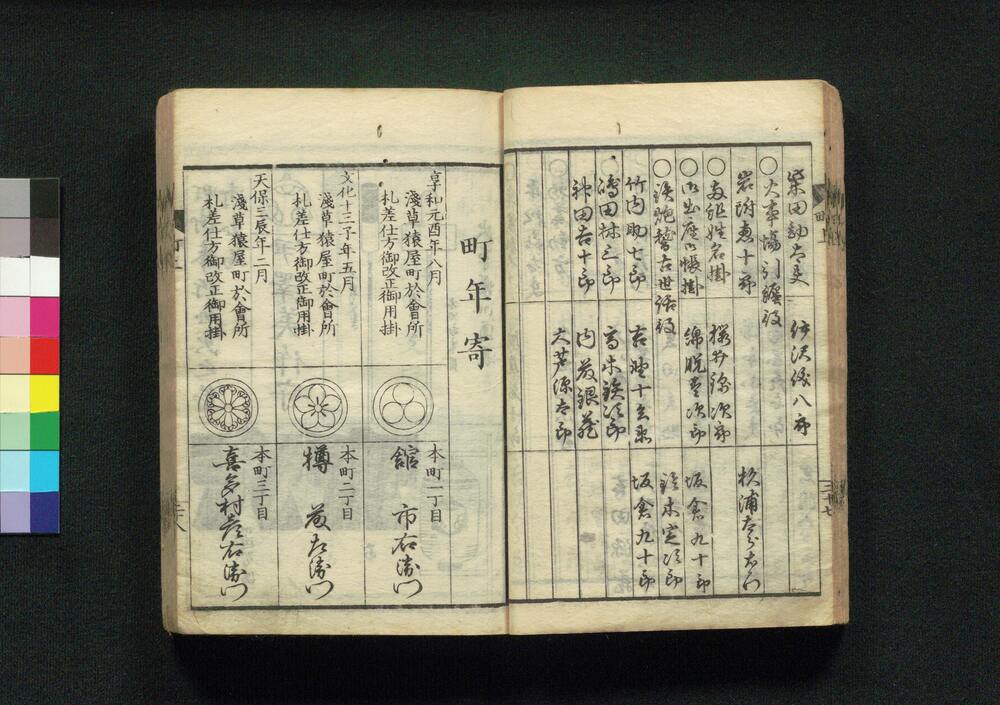 柴田勘太夫
伊沢俊八郎
〇火事場引纏役
岩附恵十郎
杉浦太郎右衛門
〇与組姓名掛
桜井鎌次郎
坂倉九十郎
〇御出座御帳掛
錦貌重次郎
鈴木定次郎
〇鉄炮稽古世話役
坂倉九十郎
竹内助七郎
高木鉄次郎
林三郎
内藤銀蔵
神田吉十郎
大芦源太郎
町年寄
享和元酉年八月
淺草猿屋町於會所
札差仕方御改正御用掛
本町一丁目
舘 市右衛門
文化十三子年五月
淺草猿屋町於會所
札差仕方御改正御用掛
本町二丁目
樽 藤左衛門
天保三辰年二月
淺草猿屋町於會所
札差仕方御改正御用掛
本町三丁目
喜多村彦右衛門